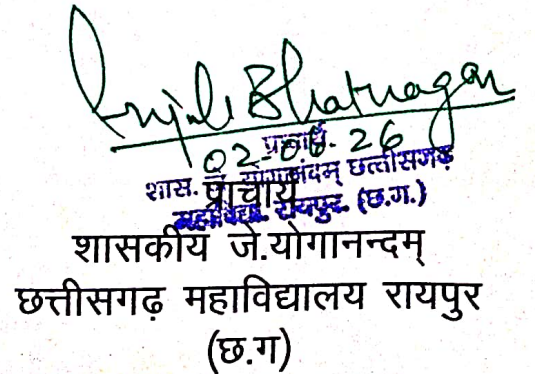 Anjali Bhatnagar
02-06-26
प्राचार्य
शास. जे. योगानंदम् छत्तीसगढ़
प्राचार्य
महाविद्या. रायपुर (छ.ग.)
शासकीय जे.योगानन्दम्
छत्तीसगढ़ महाविद्यालय रायपुर
(छ.ग)